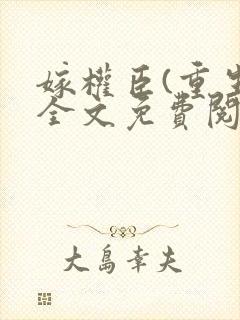 嫁權臣(重生
全文免費閱
大島幸夫